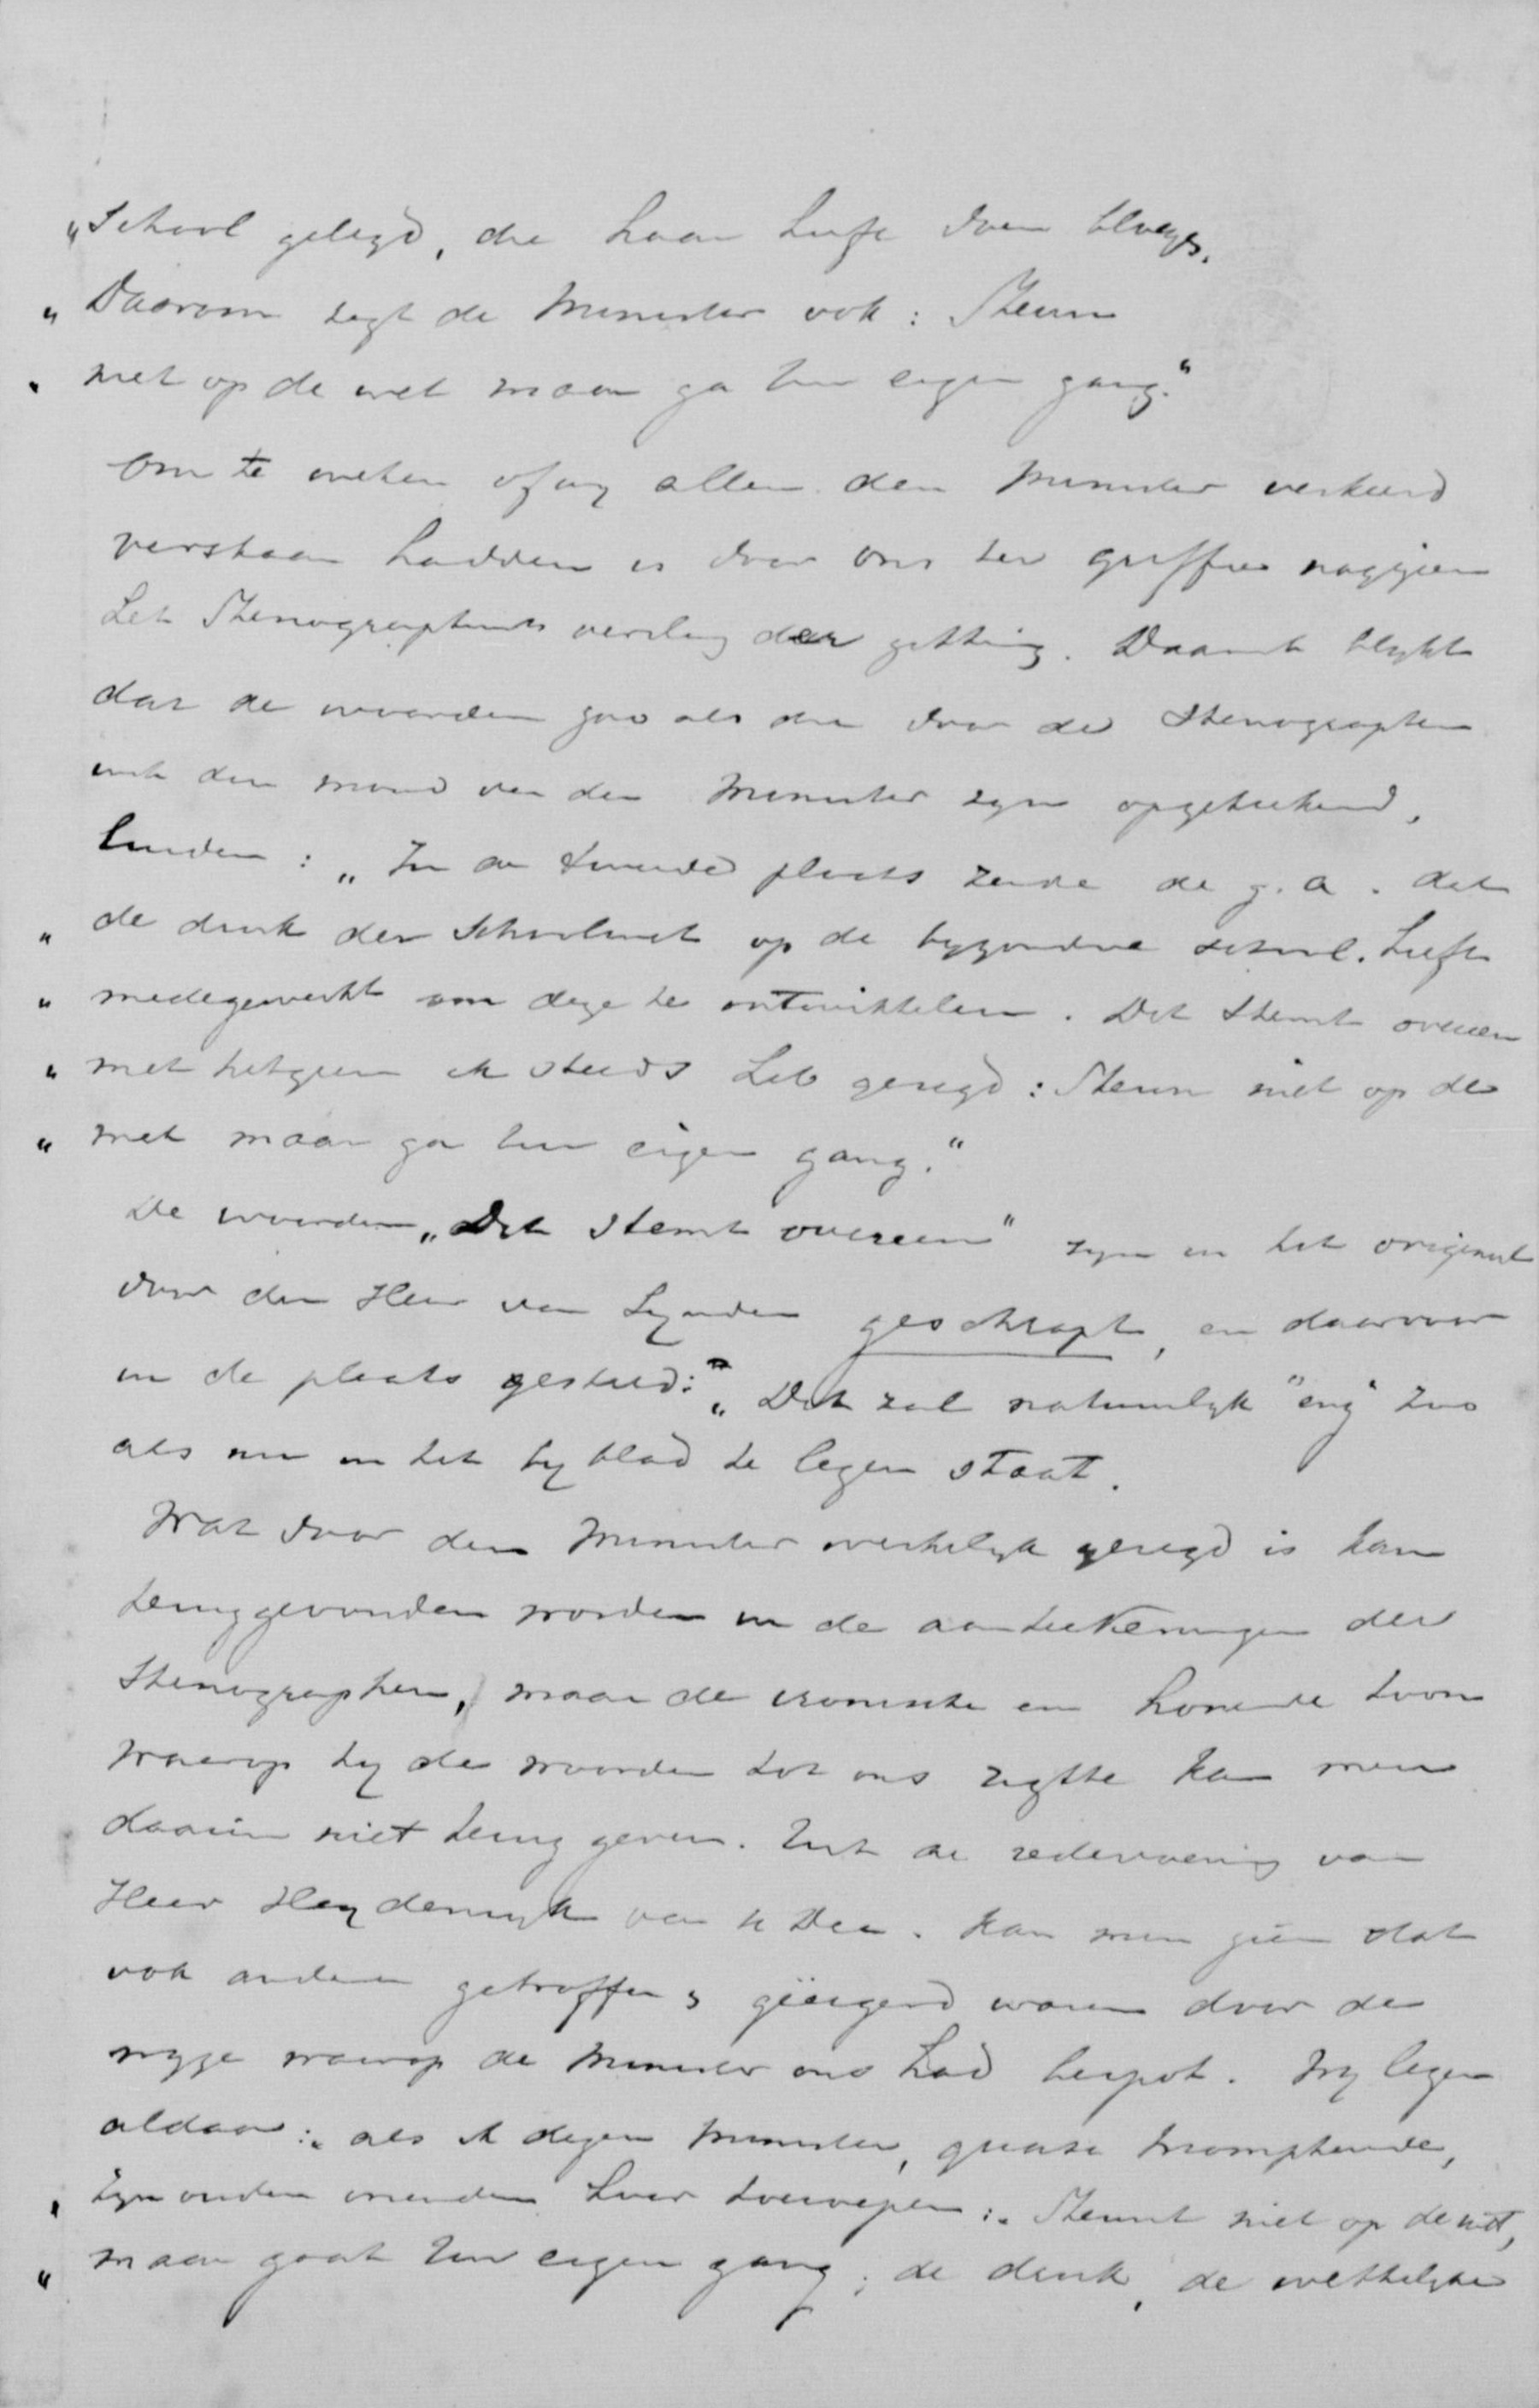 „School gelegd, die haar heeft doen bloeyen.
„ Daarom zegt de Minister ook: Steun
„ niet op de wet maar ga Uw eigen gang."
Om te weten of wy allen den Minister verkeerd
verstaan hadden is door ons ter griffie nagezien
het Stenographisch verslag der zitting. Daaruit blykt
dat de woorden zoo als die door de Stenographen
uit den mond van den Minister zyn opgetekend,
luiden: „In de tweede plaats zeide de g. a. dat
„ de druk der Schoolwet op de byzondere school heeft
„ medegewerkt om deze te ontwikkelen. Dit stemt overeen
„ met hetgeen ik steeds heb gezegd: Steun niet op de
„ wet maar ga Uw eigen gang."
De woorden „Dit stemt overeen" zyn in het origineel
door den Heer van Lynden geschrapt, en daarvoor
in de plaats gesteld: „Dit zal natuurlyk" enz zoo
als nu in het byblad te lezen staat.
Wat door den Minister werkelyk gezegd is kan
teruggevonden worden in de aanteekeningen der
Stenographen, maar de ironische en honende toon
waarop hy die woorden tot ons rigtte kan men
daarin niet terug geven. Uit de redevoering van
Heer Heydenryck van Dec. kan men zien dat
ook anderen getroffen & geërgerd waren door de
wyze waarop de Minister ons had bespot. Wy lezen
aldaar: „als ik dezen Minister, quasi triompheerende,
„ zyn ouden vrienden hoor toeroepen: „Steunt niet op de wet,
„ maar gaat Uw eigen gang; de druk, de wettelyke